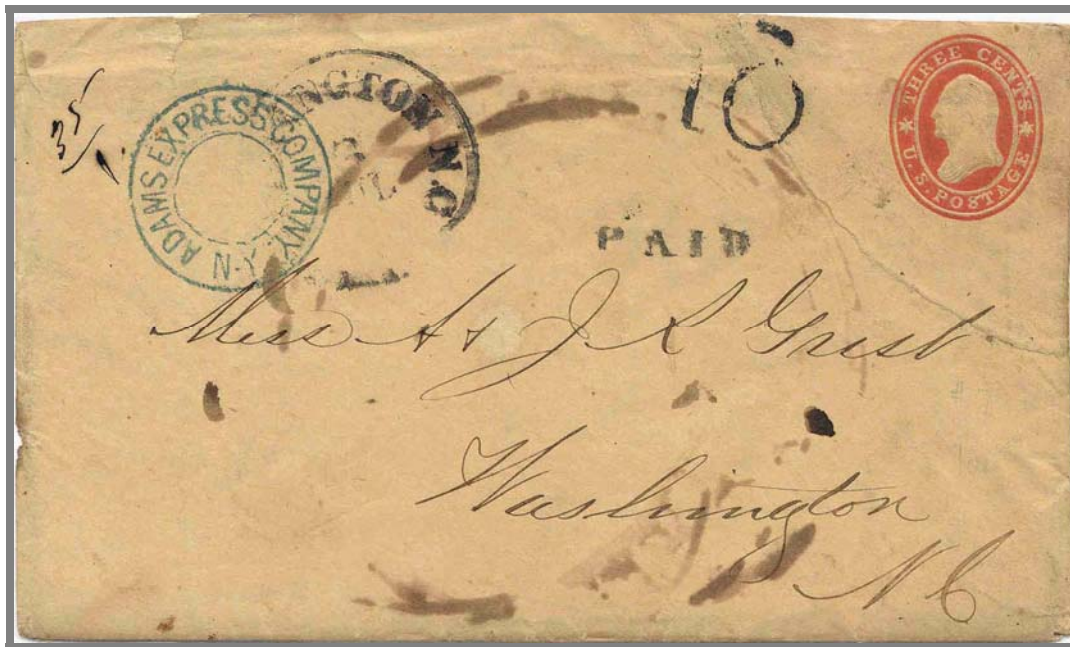 35
ADAMS EXPRESS COMPANY. N.Y
NGTON N.C
PAID
10
THREE CENTS
U.S. POSTAGE
Miss A & J R Grist
Washington
N C